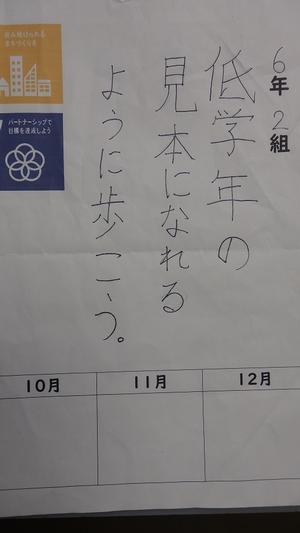 6年2組
低学年の
見本になれる
ように歩こう。
住み続けられる
まちづくりを
パートナーシップで
目標を達成しよう
10月
11月
12月